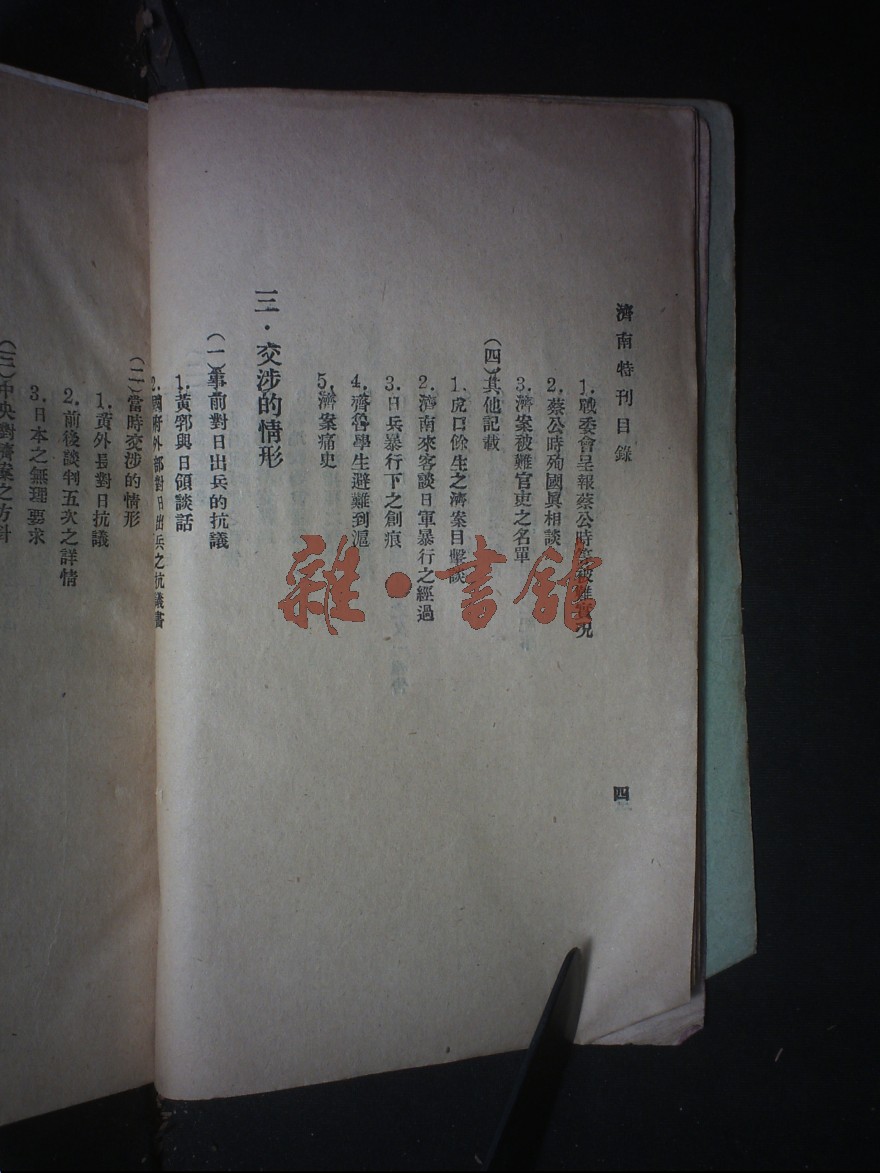 濟南特刊目錄
四
1.戰委會呈報蔡公時等被難實况
2.蔡公時殉國眞相談
3.濟案被難官吏之名單
(四)其他記載
1.虎口餘生之濟案目擊談
2.濟南來客談日軍暴行之經過
3.日兵暴行下之創痕
4.齊魯學生避難到滬
5.濟案痛史
三·交涉的情形
(一)事前對日出兵的抗議
1.黃郛與日領談話
2.國府外部對日出兵之抗議書
(二)當時交涉的情形
1.黃外長對日抗議
2.前後談判五次之詳情
3.日本之無理要求
(三)中央對濟案之方針
雜·書館